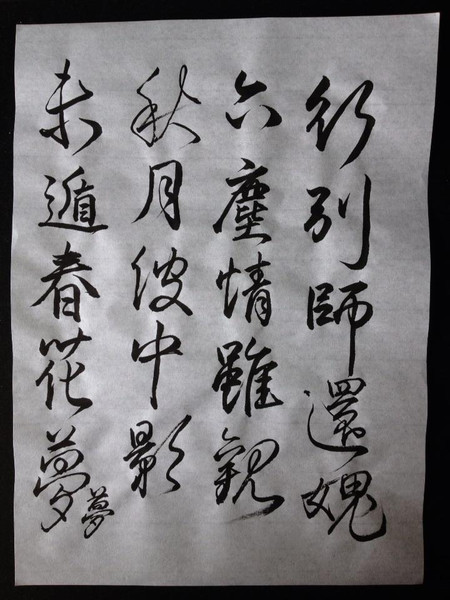 行別師還媿
六塵情雖觀
秋月波中影
未遁春花夢
夢